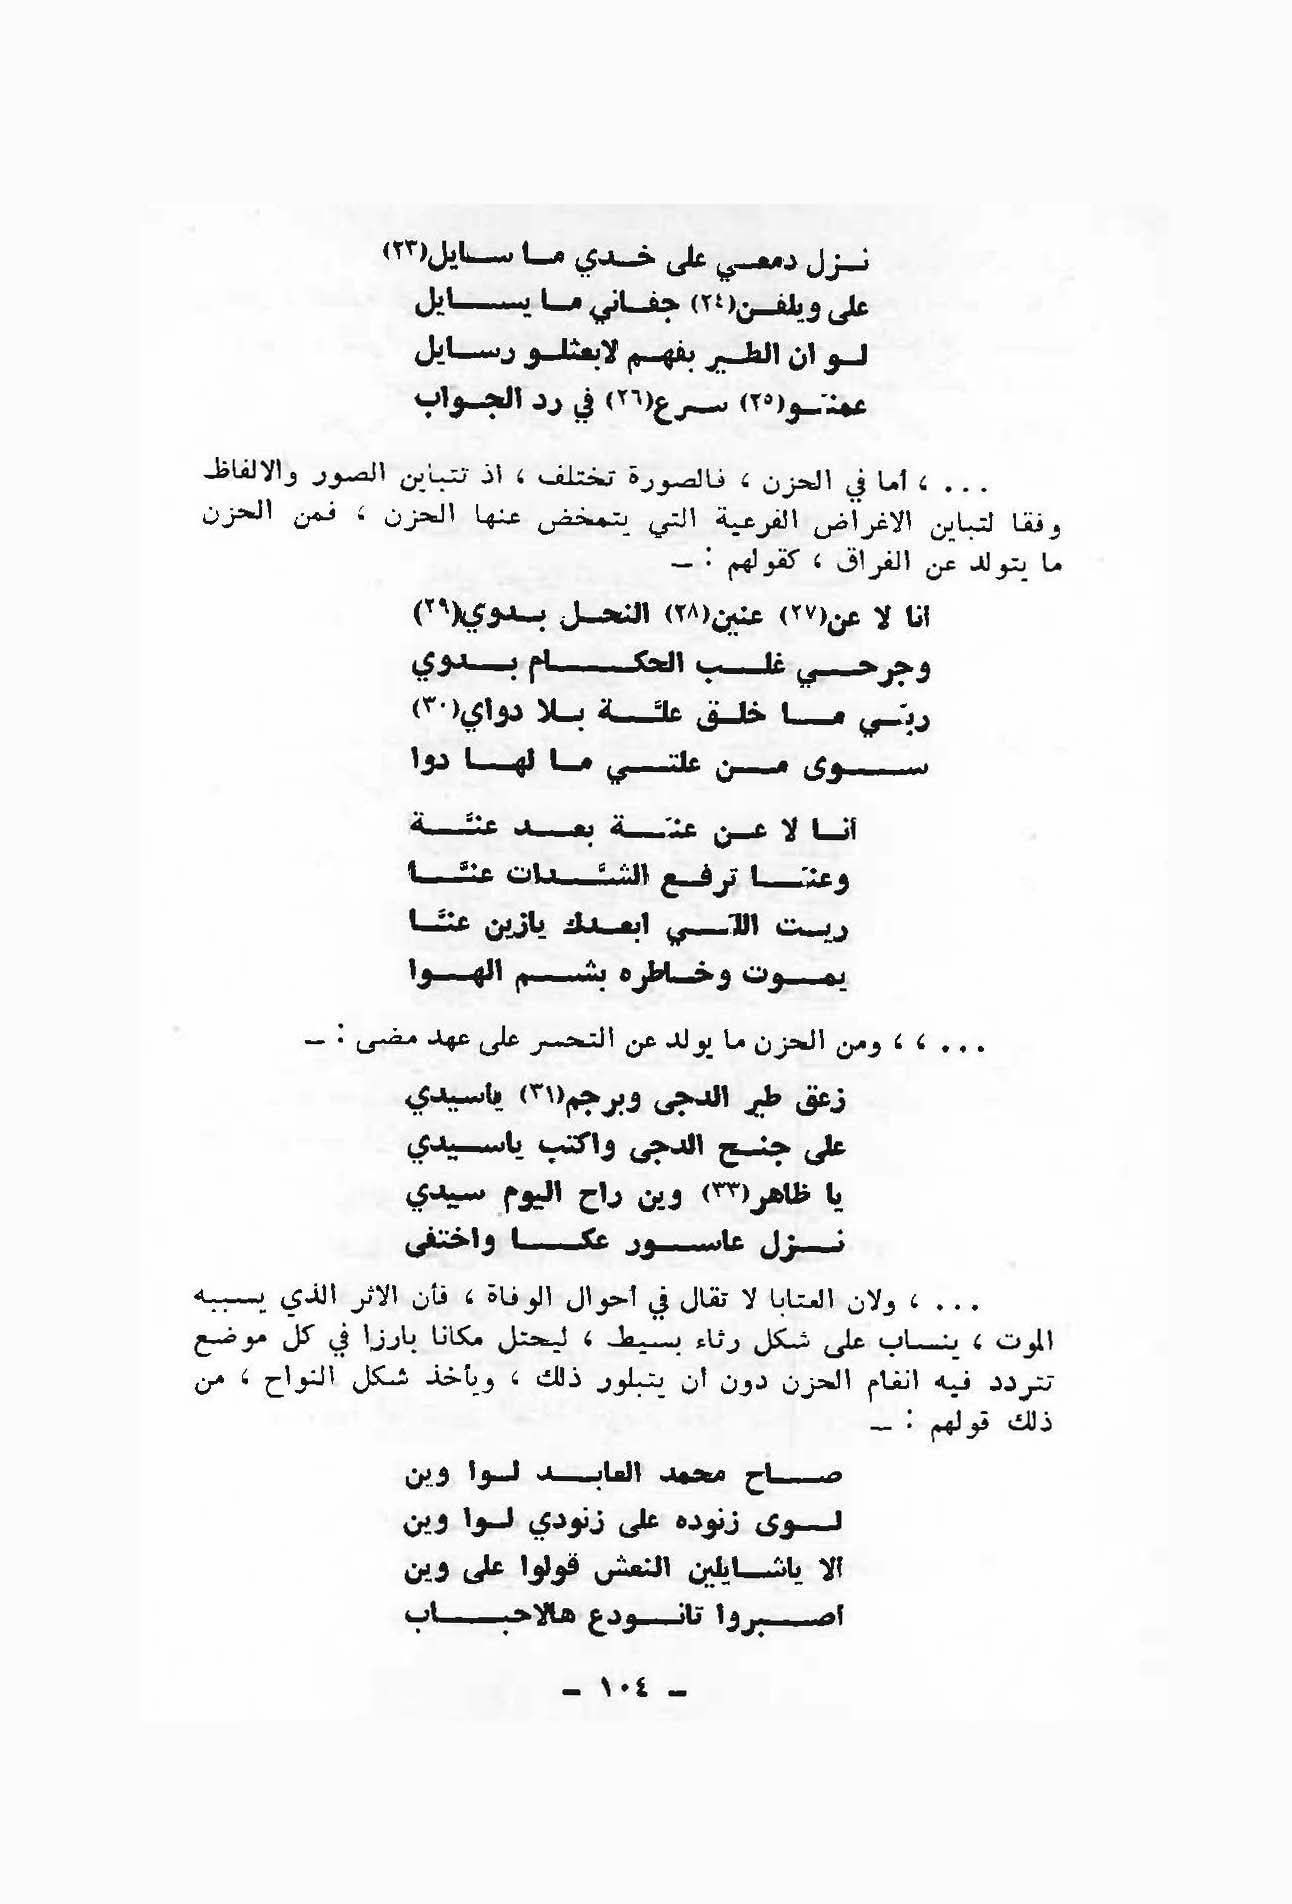 نزل دمعي على خدي ما سايل(٢٣)
على ويلفن(٢٤) جفاني ما يسايل
لو ان الطير بفهم لابعثلو رسايل
عمنّو(٢٥) سرع(٢٦) في رد الجواب
... ، أما في الحزن ، فالصورة تختلف ، اذ تتباين الصور والالفاظ
وفقا لتباين الاغراض الفرعية التي يتمخض عنها الحزن ، فمن الحزن
ما يتولد عن الفراق ، كقولهم : ـ
انا لا عن(٢٧) عنين(٢٨) النحل بدوي(٢٩)
وجرحي غلب الحكام بدوي
ربّي ما خلق علَّة بلا دواي(٣٠)
سوى من علتي ما لها دوا
أنا لا عن عنّة بعد عنَّة
وعنّا ترفع الشَّدات عنَّا
ريت اللّي ابعدك يازين عنَّا
يموت وخاطره بشم الهوا
... ، ، ومن الحزن ما يولد عن التحسر على عهد مضى : ـ
زعق طير الدجى وبرجم(٣١) ياسيدي
على جنح الدجى واكتب ياسيدي
يا ظاهر(٣٣) وين راح اليوم سيدي
نزل عاسور عكا واختفى
... ، ولان العتابا لا تقال في أحوال الوفاة ، فأن الاثر الذي يسببه
الموت ، ينساب على شكل رثاء بسيط ، ليحتل مكانا بارزا في كل موضع
تتردد فيه انغام الحزن دون أن يتبلور ذلك ، ويأخذ شكل النواح ، من
ذلك قولهم : ـ
صاح محمد العابد لوا وين
لوى زنوده على زنودي لوا وين
ألا ياشايلين النعش قولوا على وين
أصبروا تانودع هالاحباب
- ١٠٤ -